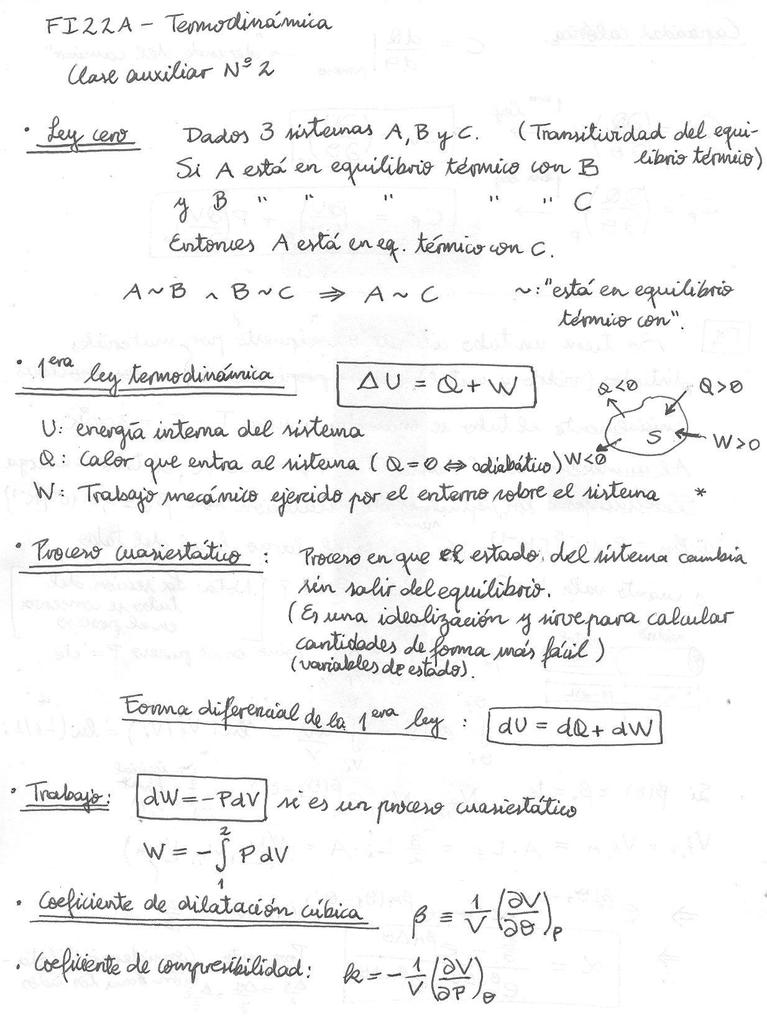 FI22A - Termodinámica
Clase auxiliar Nº 2
• Ley cero Dados 3 sistemas A, B y C. (Transitividad del equi-
Si A está en equilibrio térmico con B librio térmico)
y B " " " " " C
Entonces A está en eq. térmico con C.
A ~ B ∧ B ~ C ⇒ A ~ C ~: "está en equilibrio
térmico con".
• 1era ley termodinámica ΔU = Q + W
Q<0 Q>0
S W>0
U: energía interna del sistema
Q: Calor que entra al sistema (Q = 0 ⇔ adiabático) W<0
W: Trabajo mecánico ejercido por el entorno sobre el sistema *
• Proceso cuasiestático: Proceso en que el estado del sistema cambia
sin salir del equilibrio.
(Es una idealización y sirve para calcular
cantidades de forma más fácil)
(variables de estado).
Forma diferencial de la 1era ley: dU = dQ + dW
• Trabajo: dW = -PdV si es un proceso cuasiestático
W = -∫₁² P dV
• Coeficiente de dilatación cúbica β ≡ 1/V (∂V/∂θ)_P
• Coeficiente de compresibilidad: k = -1/V (∂V/∂P)_θ